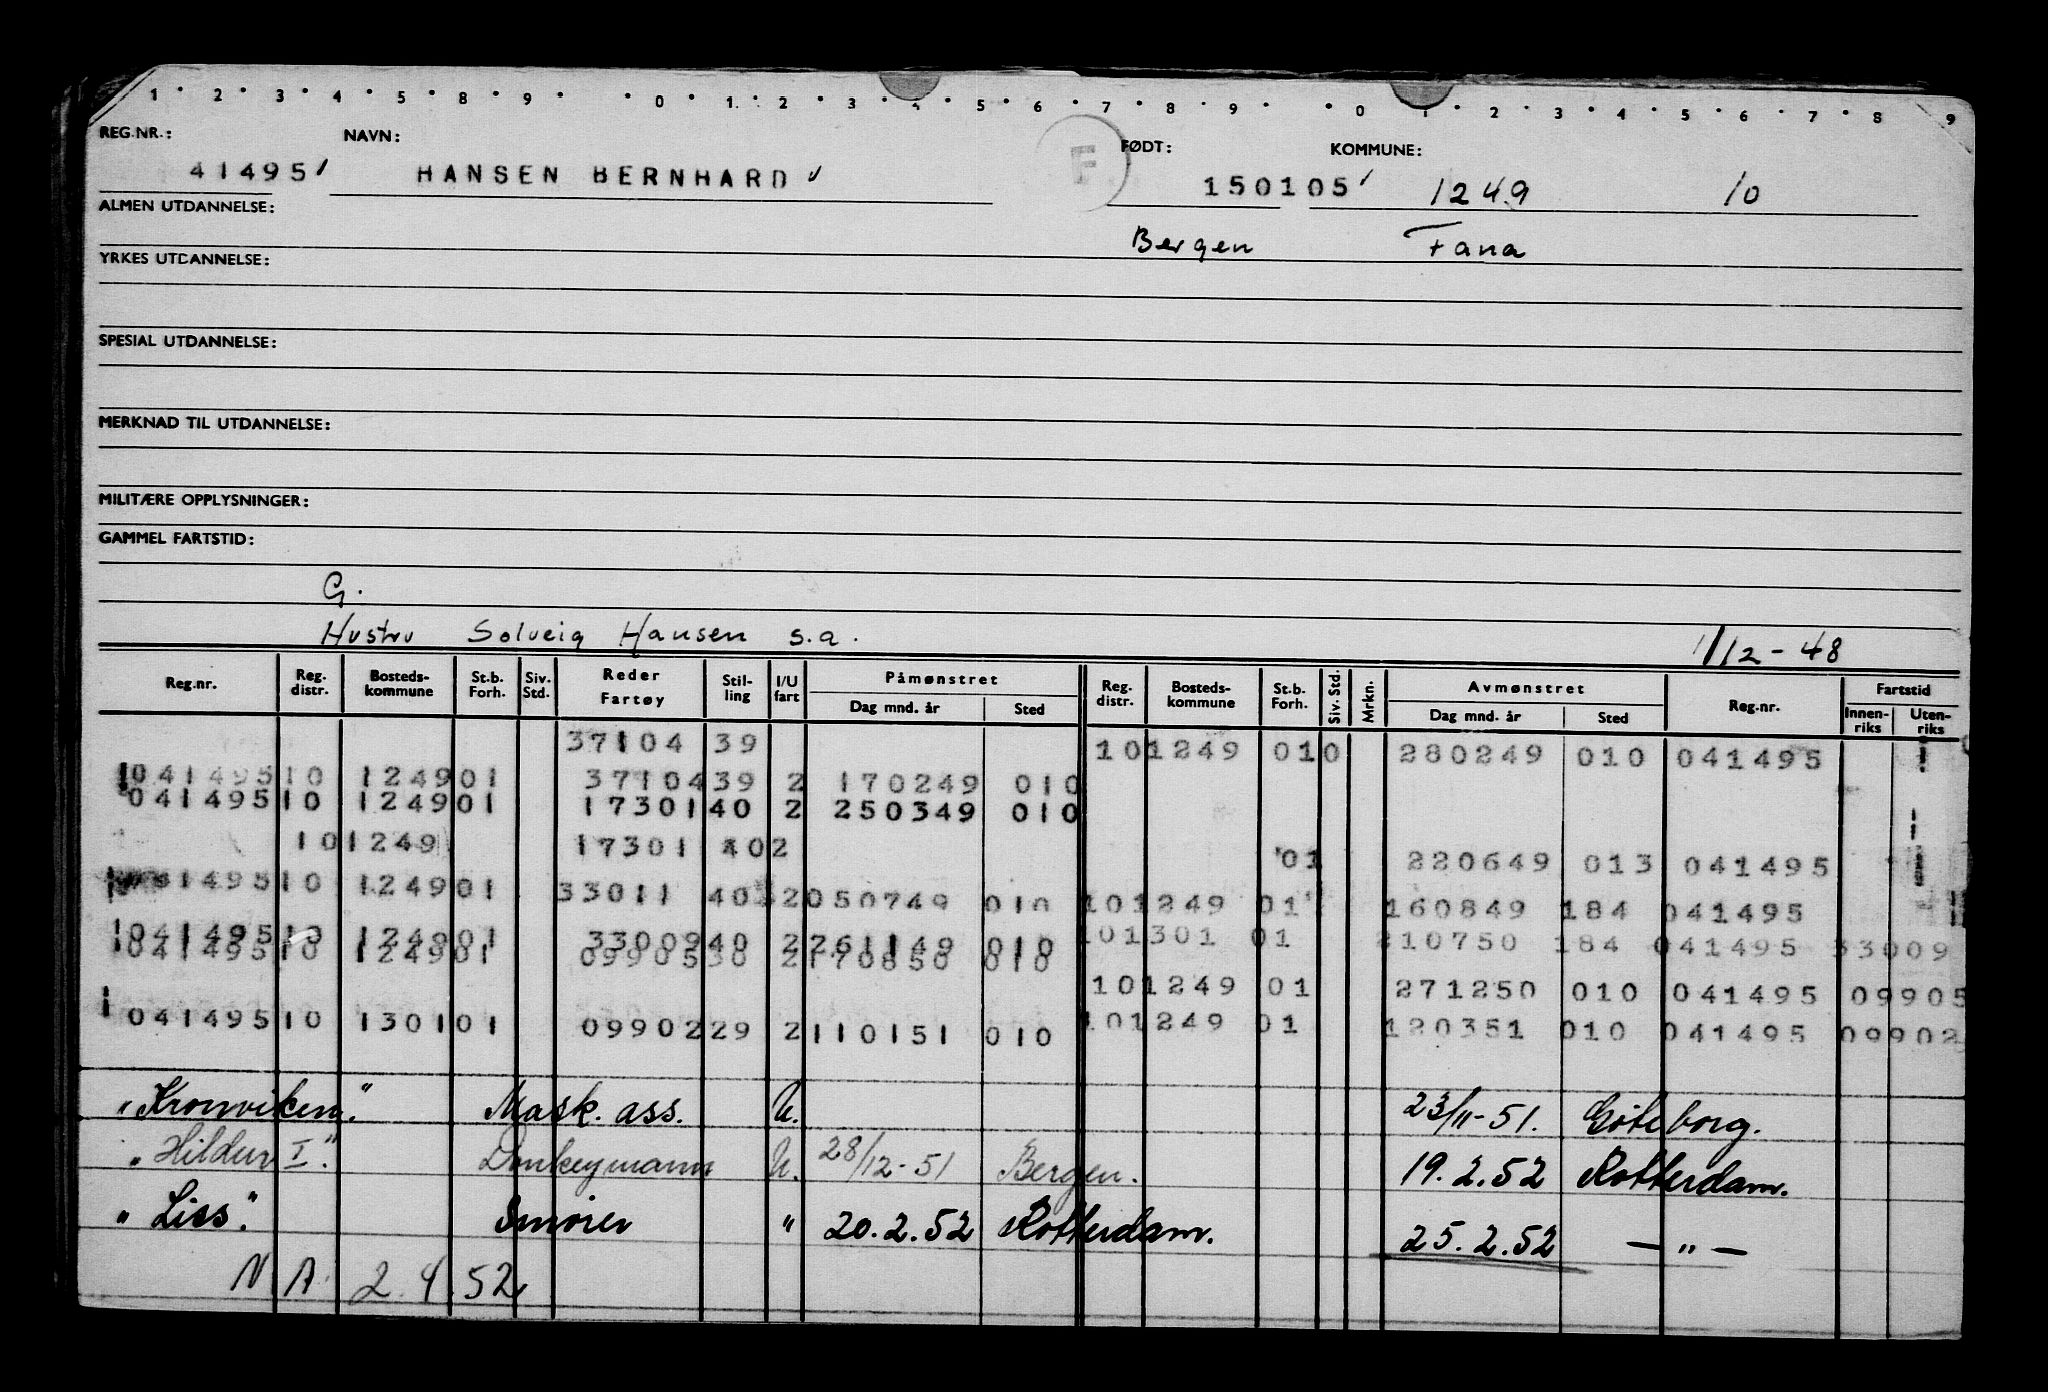 1 2 3 4 5 8 9 0 1 2 3 4 5 6 7 8 9 0 1 2 3 4 5 6 7 8 9
REG.NR.: NAVN: F FØDT: KOMMUNE:
41495 HANSEN BERNHARD 150105 1249 10
ALMEN UTDANNELSE:
Bergen Fana
YRKES UTDANNELSE:
SPESIAL UTDANNELSE:
MERKNAD TIL UTDANNELSE:
MILITÆRE OPPLYSNINGER:
GAMMEL FARTSTID:
G.
Hustru Solveig Hansen s.a. 1/12-48
Reg.nr. Reg. distr. Bosteds-kommune St.b. Forh. Siv. Std. Reder Fartøy Stil-ling I/U fart Påmønstret Dag mnd. år Sted Reg. distr. Bosteds-kommune St.b. Forh. Siv. Std. Mrkn. Avmønstret Dag mnd. år Sted Reg.nr. Fartstid Innen-riks Uten-riks
37104 39 101249 010 280249 010 041495
041495 10 124901 37104 39 2 170249 010
041495 10 124901 17301 40 2 250349 010
101249 17301 402 01 220649 013 041495
41495 10 124901 33011 40 2 050749 010 101249 01 160849 184 041495
041495 10 124901 33009 40 2 261149 010 101301 01 210750 184 041495 33009
041495 10 124901 09905 30 2 170850 010
101249 01 271250 010 041495 09905
041495 10 130101 09902 29 2 110151 010 101249 01 120351 010 041495 09902
"Kronviken." Mask. ass. U. 23/11-51. Göteborg.
"Hildur I." Donkeymann U. 28/12-51 Bergen. 19.2.52 Rotterdam.
"Liss". Smører " 20.2.52 Rotterdam. 25.2.52 — " —
N A 2.4.52